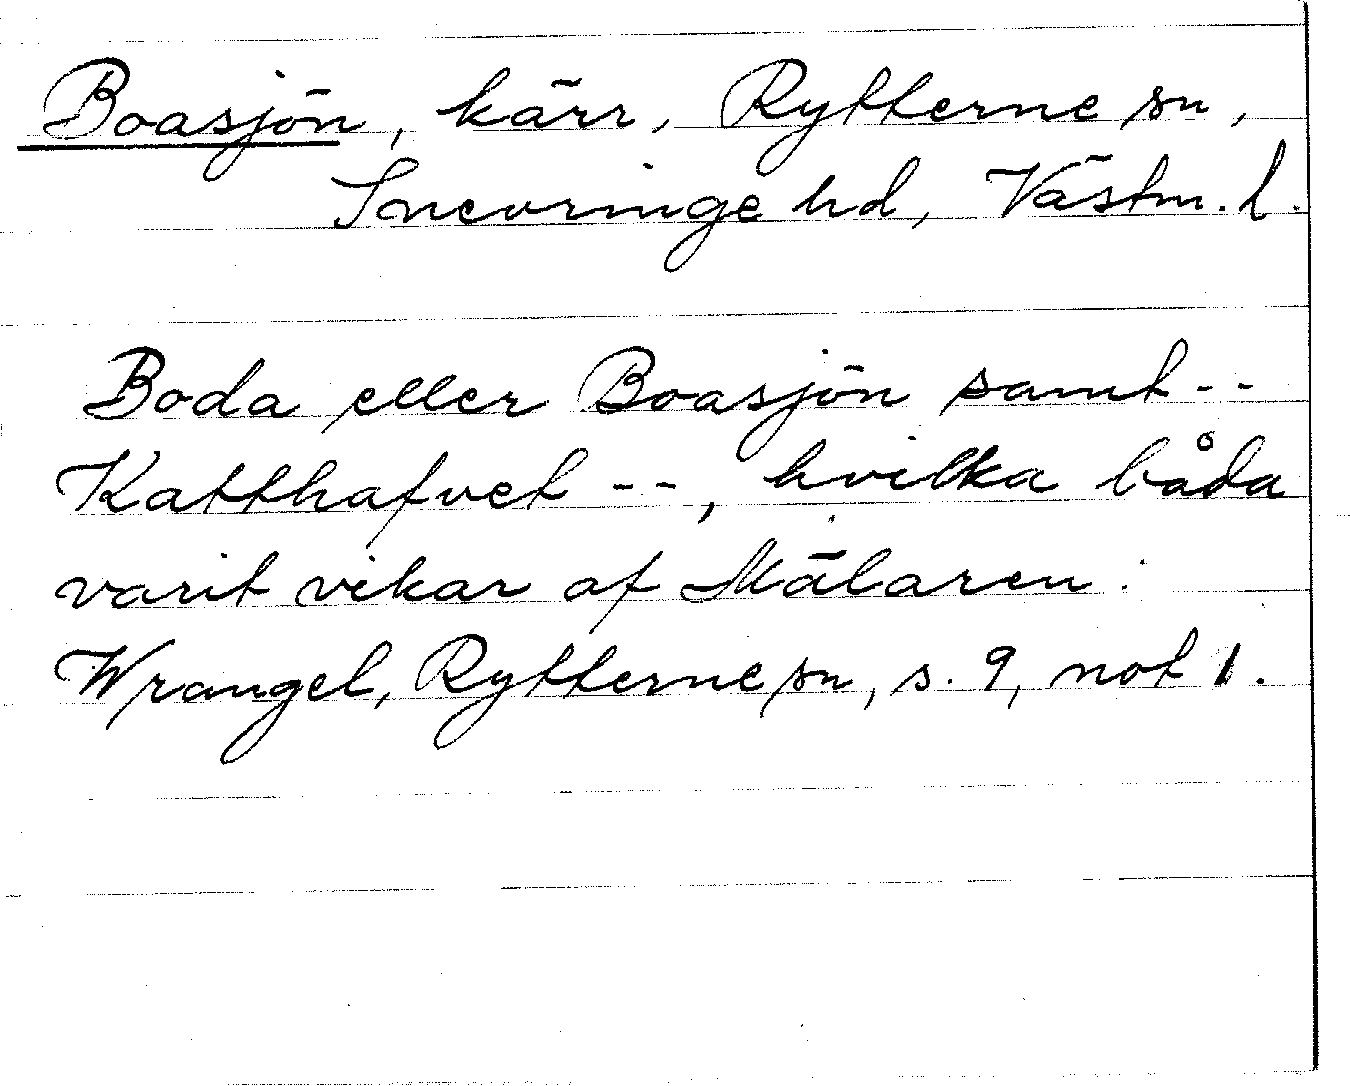 Boasjön, kärr, Rytterne sn,
Snevringe hd, Västm. l.
Boda eller Boasjön samt --
Katthafvet --, hvilka båda
varit vikar af Mälaren.
Wrangel, Rytterne sn, s. 9, not 1.